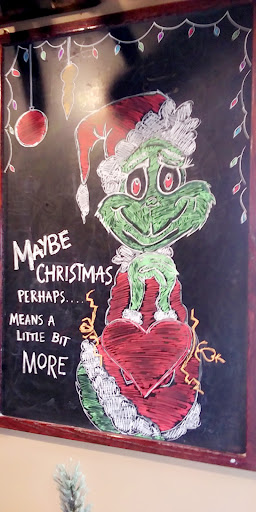 MAYBE
CHRISTMAS
PERHAPS....
MEANS A
LITTLE BIT
MORE